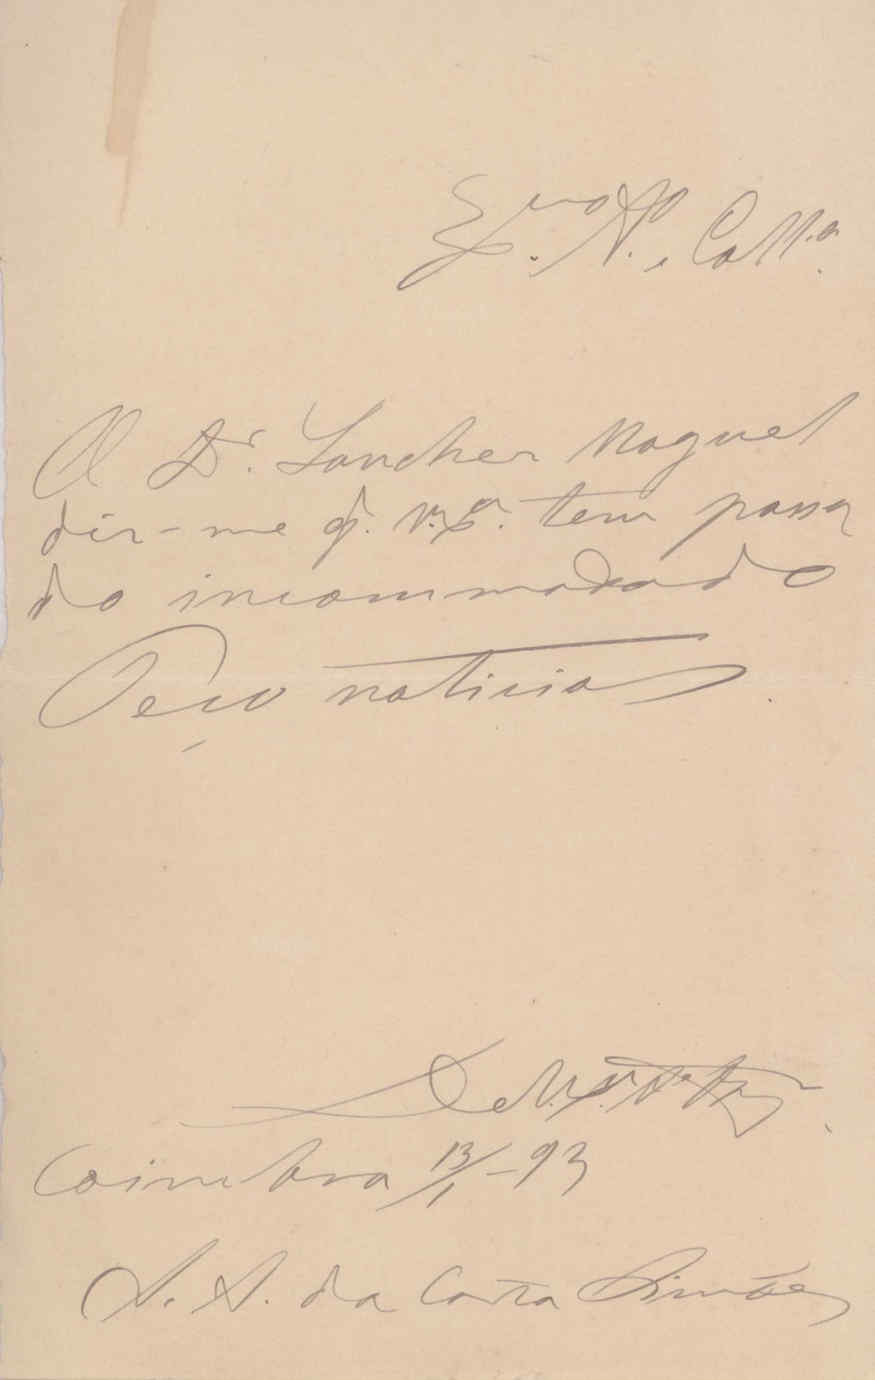 Exmo. Amo. e Colla.
O Dr. Sanches Moguel
diz-me q. V. Exa. tem passa
do incommodado
Peço noticias.
De V. Exa.
Coimbra 13/1-93
A. A. da Costa Simões